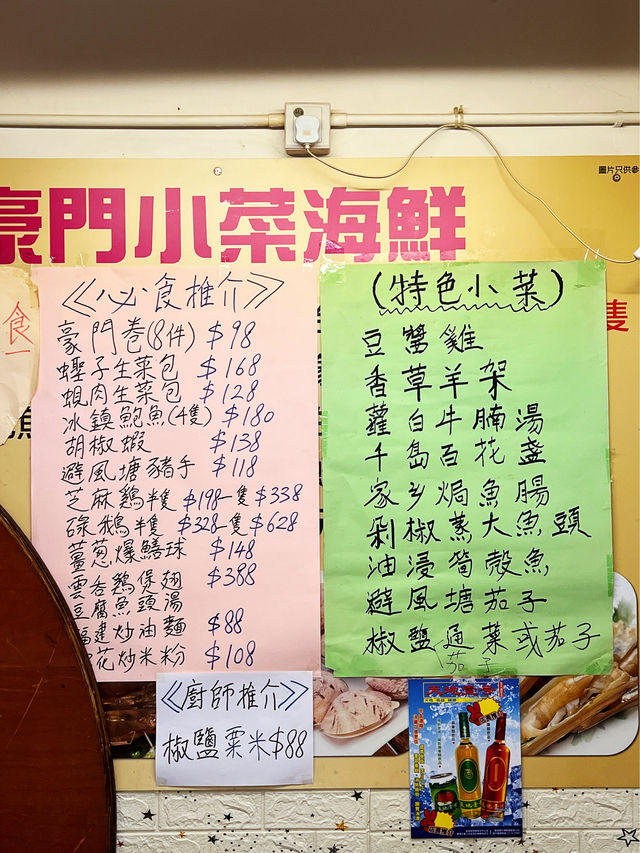 圖片只供參
豪門小菜海鮮
食
隻
《必食推介》
豪門卷(8件) $98
蟶子生菜包 $168
蜆肉生菜包 $128
冰鎮鮑魚(4隻) $180
胡椒蝦 $138
避風塘豬手 $118
芝麻鷄半隻 $198 一隻 $338
碌鵝半隻 $328 一隻 $628
薑葱爆鱔球 $148
雲吞鷄煲翅 $388
豆腐魚頭湯
福建炒油麵 $88
花炒米粉 $108
《廚師推介》
椒鹽粟米 $88
(特色小菜)
豆醬雞
香草羊架
蘿白牛腩湯
千島百花盞
家乡焗魚腸
剁椒蒸大魚頭
油浸筍殼魚
避風塘茄子
椒鹽通菜或茄子
茄子